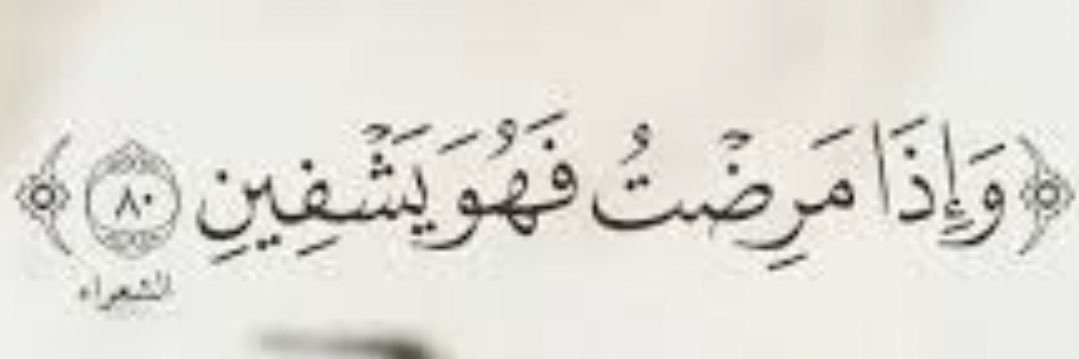 ﴿ وَإِذَا مَرِضْتُ فَهُوَ يَشْفِينِ ٨٠ ﴾
الشعراء